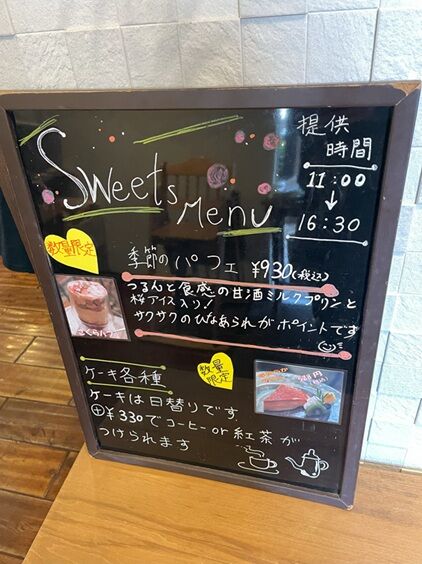 Sweets Menu
提供時間
11:00
↓
16:30
数量限定
季節のパフェ ¥930(税込)
つるんと食感の甘酒ミルクプリンと
桜アイス入り!
サクサクのひなあられがポイントです
さくらパフェ
ケーキ各種
数量限定
ケーキは日替りです
⊕¥330でコーヒーor紅茶が
つけられます